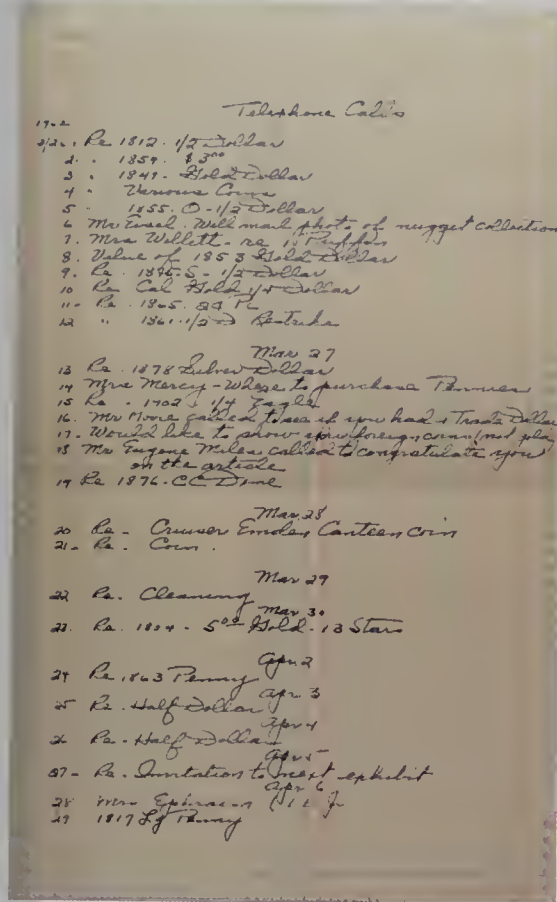 Telephone Calls
3/26. 1. Re 1812. 1/2 Dollar
2. " 1854. $3.00
3 " 1849. Gold Dollar
4 " Various Coins
5 - 1855. O - 1/2 Dollar
6 Mr Will mail photo of nugget collection
7. Mrs Willett - re
8. Value of 1853 Gold Dollar
9. Re. S - 1/2 Dollar
10 Re Cal Gold 1/4 Dollar
11 - Re. 1865.
12 " 1861. 1/2 D Restrike
Mar 27
13 Re. 1878 Silver Dollar
14 Mrs Mercy - Where to purchase Pennies
15 Re - 1902 - 1/4 Eagle
16. Mr Moore called to see if you had a Trade Dollar
17. Would like to show you foreign coin
18 Mr Eugene Miles called to congratulate you
on the article
19 Re 1876 - CC Dime
Mar 28
20 Re - Cruiser Emden Canteen coin
21 - Re. Coin.
Mar 29
22 Re. Cleaning
Mar 30
23. Re. 1804 - 5.00 Gold - 13 Stars
Apr 2
24 Re 1863 Penny
Apr. 3
25 Re. Half Dollar
Apr 4
26 Re - Half Dollar
Apr 5
27 - Re - Invitation to next exhibit
Apr 6
28 Mrs
29 1817 Lg Penny